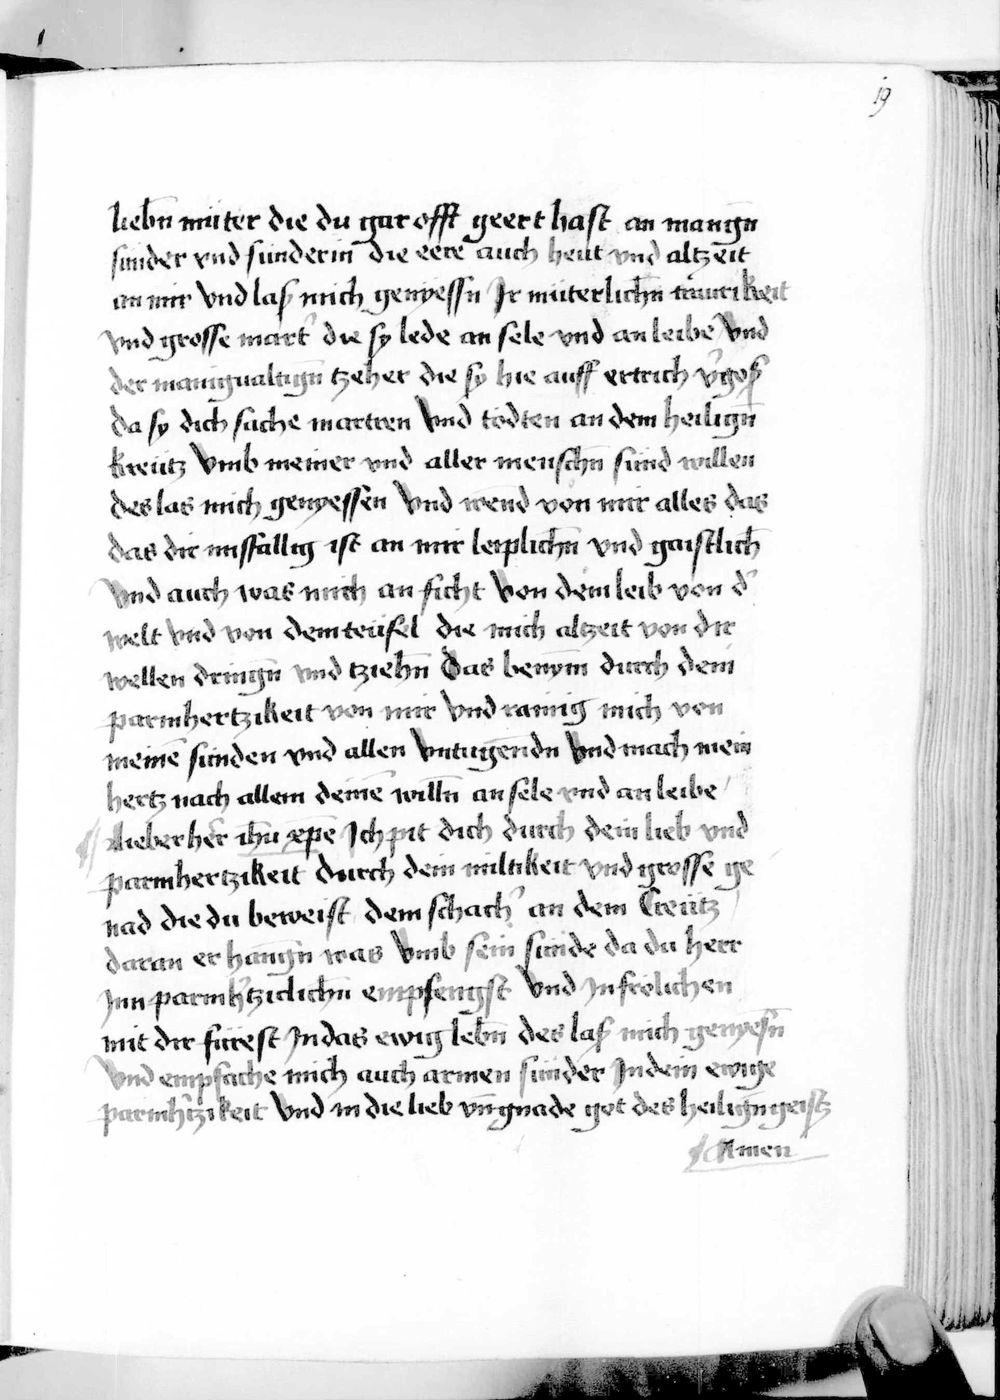 19
liebn̄ müter die du gar offt geert hast an manigñ
sünder vnd sünderin die eere auch heut vnd altzeit
an mir vnd laß mich genyessn Ir müterlichñ traurikeit
vnd grosse mart̾ die sy lede an sele vnd an leibe vnd
der manigualtign̄ tzeher die sy hie auff ertrich v̾goß
da sy dich sache martren vnd tödten an dem heiligñ
kreütz vmb meiner vnd aller menschñ sünd willen
des las mich genyessen vnd wend von mir alles das
das dir missfallig ist an mir leiplichñ vnd gaistlich
vnd auch was mich an ficht von dem leib von d̾
welt vnd von dem teüfel die mich altzeit von dir
wellen dringn̄ vnd tziehn̄ das benym̄ durch dein
parmhertzikeit von mir vnd rainig mich von
meinē sünden vnd allen vntugendn vnd mach mein
hertz nach allem deinē willn̄ an sele vnd an leibe
lieber her̄ ihū xp̄e Ich pit dich durch dein lieb vnd
parmhertzikeit durch dein miltikeit vnd grosse ge
nad die du beweist dem schach̾ an dem Creütz
daran er hangn̄ was vmb sein sünde da du herr
Inn parmh̾tziclichñ empfengst vnd In frölichen
mit dir fürest In das ewig lebn̄ des laß mich genyesn̄
vnd empfache mich auch armen sünder In dein ewige
parmh̾tzikeit vnd in die lieb vn̄ gnade got des heilign̄ geistz
Amen